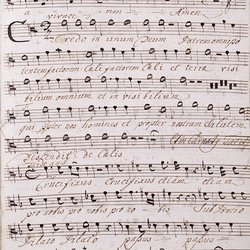 vivace men Amen
Credo in unum Deum Patrem omnipo
tentem factorem Cœli factorem Cœli et terræ visi
bilium omnium et in visibilium
qui propter nos homines et propter nostram salutem
Descendit de Cœlis
Crucifixus crucifixus etiam etiam
pro nobis pro nobis pro nobis sub Pontio
Pilato Pilato passus passus